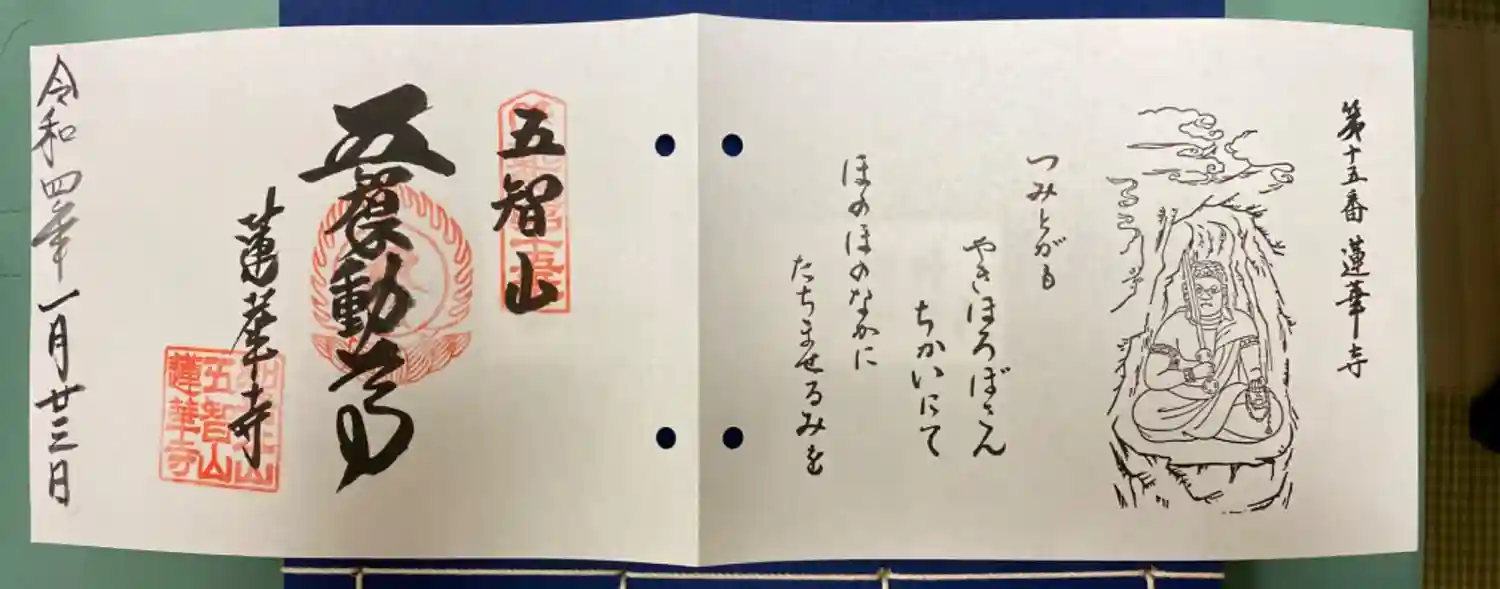 第十五番 蓮華寺
つみとがも
やきほろぼさん
ちかいにて
ほのほのなかに
たちませるみを
五智山
五 動尊
蓮華寺
五智山
蓮華寺
令和四年一月廿三日